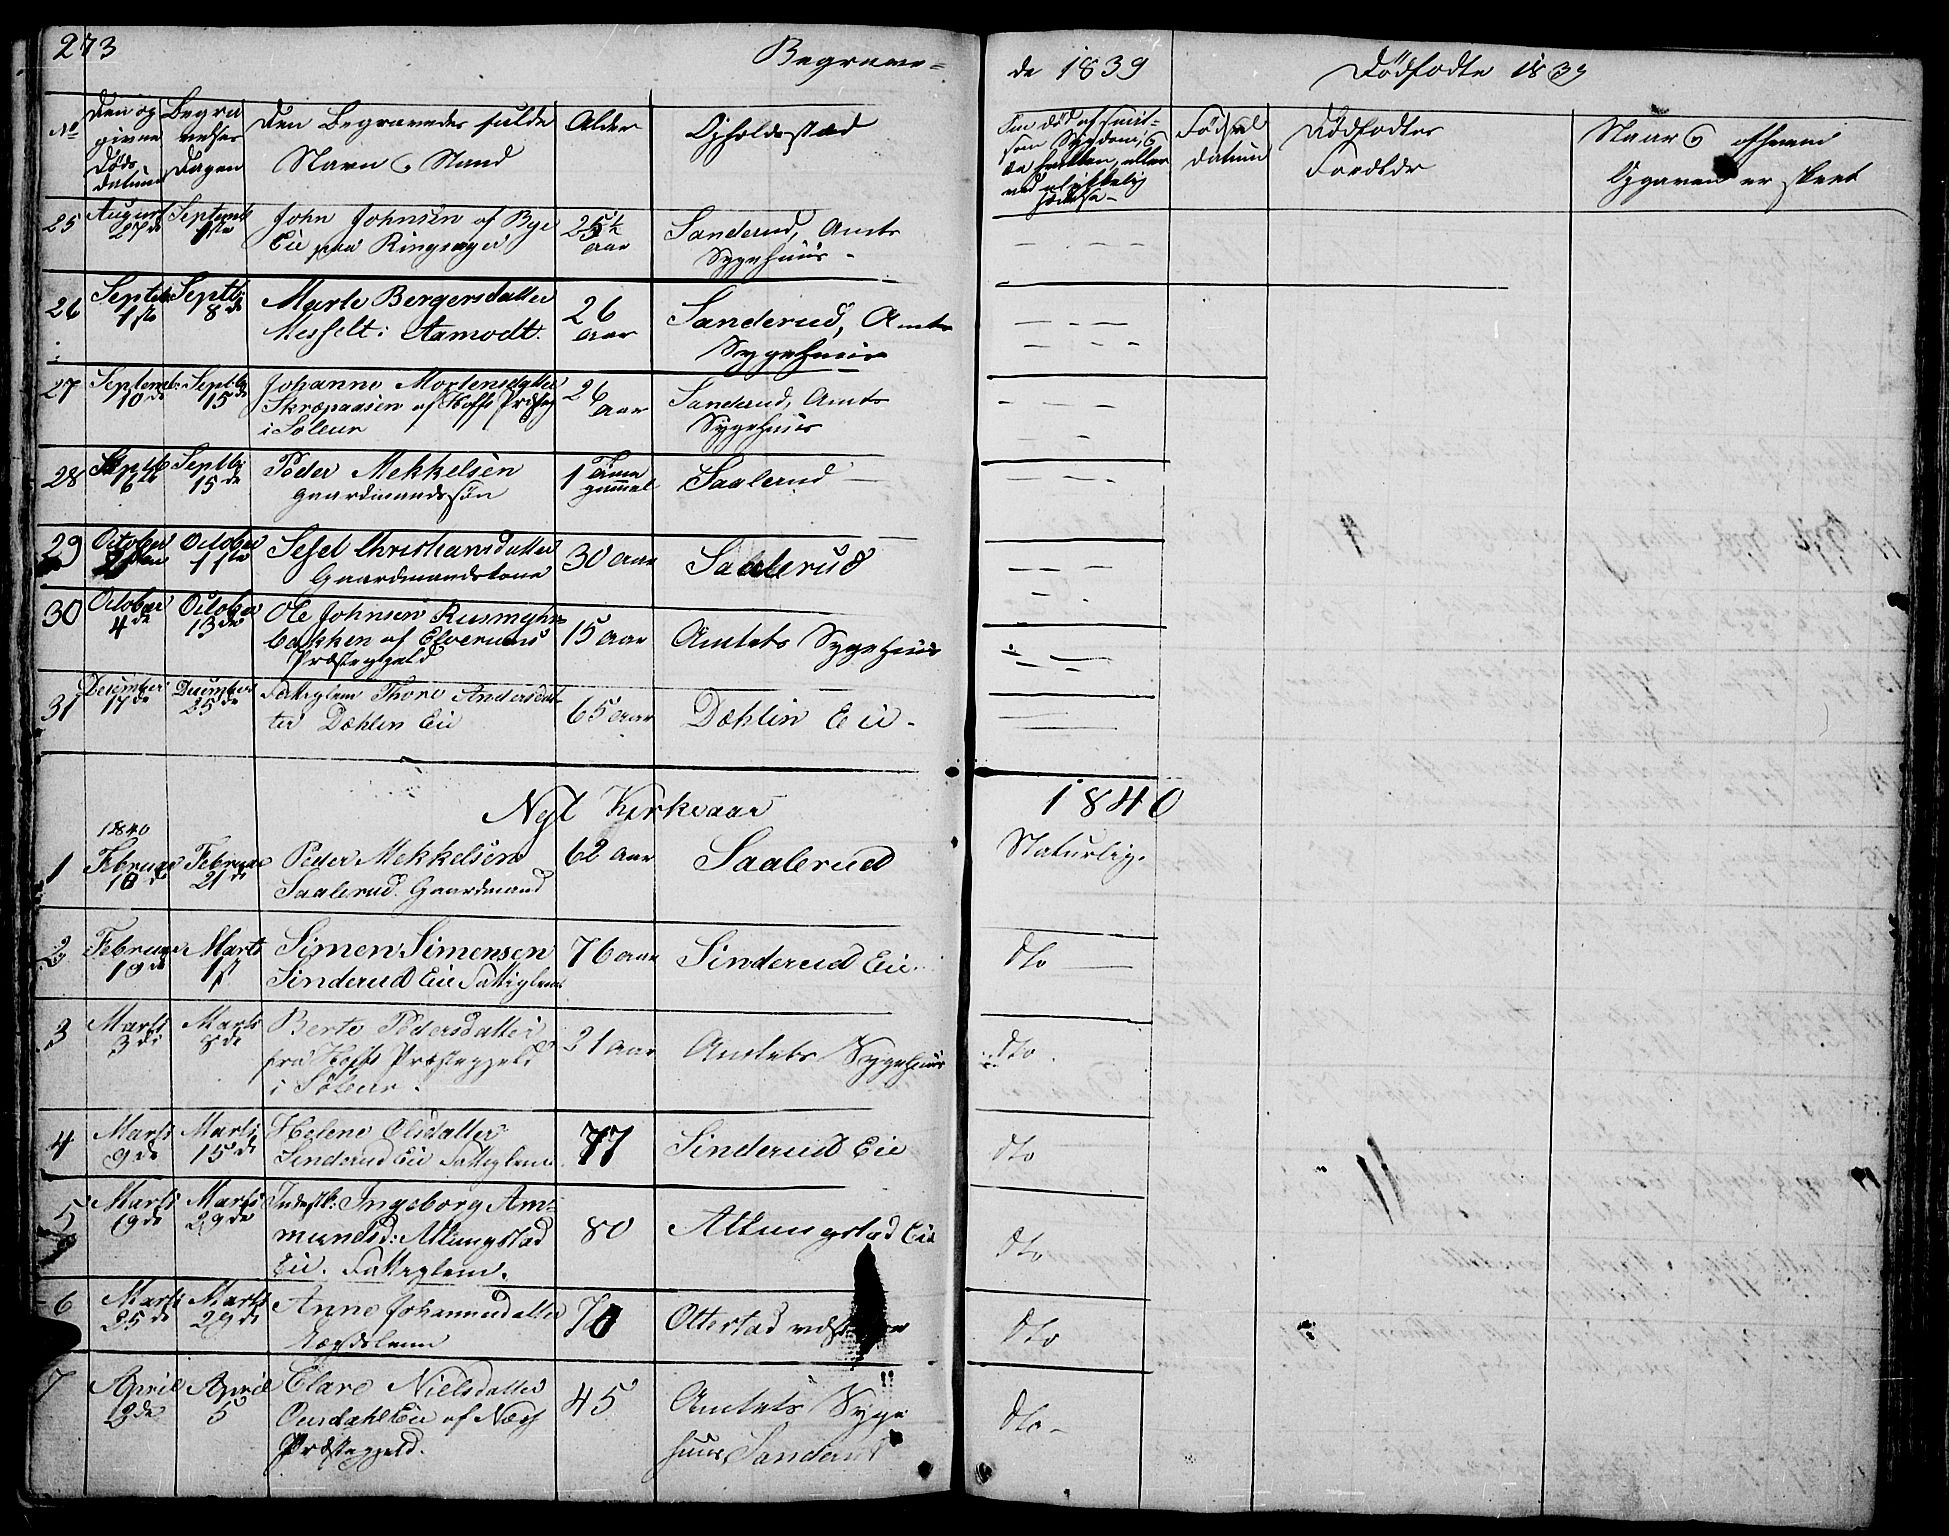 273
Begravede 1839
Dødfødte 1839
No
Den opgivne Døds datum
Begravelses Dagen
Den Begravedes fulde Navn og Stand
Alder
Opholdssted
Om død af smitsom Sygdom, og da hvilken, eller ved ulykkelig Hændelse
Fødsel datum
Dødfødtes Forældre
Naar og af hvem Opgaven er skeet
25 August 27de Septemb 1ste John Johnsen af Bye
Eie paa Ringsager 25½ Aar Sanderud, Amts
Sygehuus
26 Septbr 1ste Septbr 8de Marte Bergersdatter
Messelt i Aamodt. 26 Aar Sanderud, Amts
Sygehuus
27 Septemb: 10de Septbr 15de Johanne Mortensdatter
Skræpaasen af Hoffs Præstg
i Soleur 26 Aar Sanderud, Amts
Sygehuus
28 Septb 6te Septbr 15de Peder Mekkelsen
Gaardmandssøn 1 Time gammel Saalerud
29 October October 11te Sesel Christiansdatter
Gaardmandskone 30 Aar Saalerud
30 October 4de October 13de Ole Johnsen
bakken af Elverums
Præstegjeld 15 Aar Amtets Sygehuus
31 December 17de December 25de Fattiglem Thore Andersdatter
Dæhlin Eie 65 Aar Dæhlin Eie
Nyt Kirkeaar 1840
1840
1 Februar 10de Februar 21de Peder Mekkelsen
Saalerud. Gaardmand 62 Aar Saalerud Naturlig.
2 Februar 19de Marts 1st Simen Simensen
Sinderud Eie Fattiglem 76 Aar Sinderud Eie dto
3 Marts 3de Marts 8de Berte Pedersdatter
fra Hoffs Præstegjeld
i Soleur. 21 Aar Amtets Sygehuus dto.
4 Marts 9de Marts 15de Helene Olsdatter
Sinderud Eie Fattiglem 77 Sinderud Eie dto
5 Marts 19de Marts 29de Inderstk: Ingeborg Am-
mundsd: Attungstad
Eie. Fattiglem. 80 Attungstad Eie dto
6 Marts 25de Marts 29de Anne Johannesdatter
Lægdslem 70 Ottestad dto
7 April 2de April 5 Clare Nielsdatter
Eie af Næss
Præstegjeld. 45 Amtets Syge
huus Sanderud dto